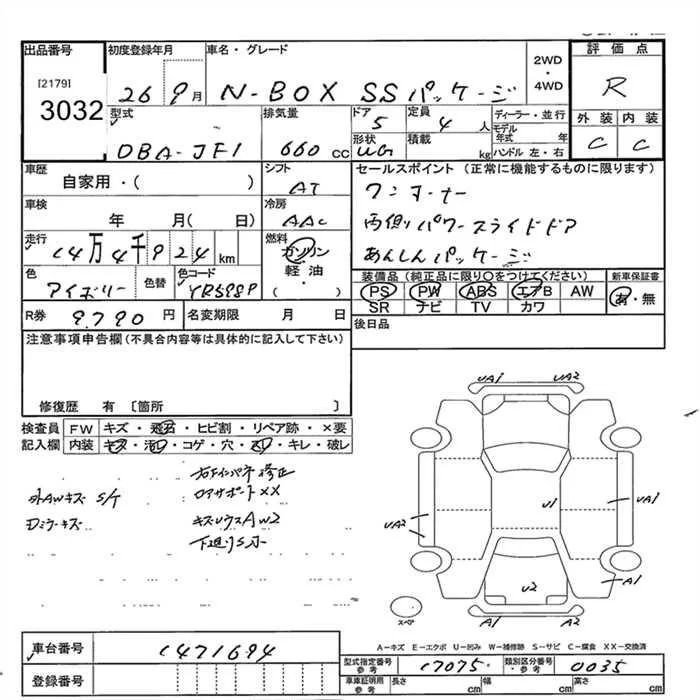 出品番号 初度登録年月 車名・グレード 2WD・4WD 評価点
[2179]
3032
26 9月 N-BOX SSパッケージ R
型式 排気量 ドア 5 定員 4人 ディーラー・並行 外装 内装
DBA-JF1 660cc 形状 積載 kg モデル年式 年 ハンドル 左・右 C C
車歴 シフト セールスポイント (正常に機能するものに限ります)
自家用・( ) AT ワンオーナー
車検 冷房
年 月( 日) AAC 両側パワースライドドア
走行 14万4千924km 燃料 ガソリン・軽油・( ) あんしんパッケージ
色 色替 色コード 装備品(純正品に限り○をつけてください) 新車保証書
アイボリー YR598P PS PW ABS エアB AW 有・無
SR ナビ TV カワ
R券 9.790円 名変期限 月 日 後日品
注意事項申告欄(不具合内容等は具体的に記入して下さい)
修復歴 有 〔箇所 〕
検査員 FW キズ・飛石・ヒビ割・リペア跡・×要
記入欄 内装 キズ・汚レ・コゲ・穴・スレ・キレ・破レ
修正
外AWキズ S/T ロアサポートXX
ミラーキズ AW2
UA1 UA2
U1 UA1
UA2
U2 A1
スペア A1 A2
A-キズ E-エクボ U-凹み W-補修跡 S-サビ C-腐食 XX-交換済
車台番号 1471694
型式指定番号 参考 17075 類別区分番号 参考 0035
登録番号
車庫証明用 参考 長さ cm 幅 cm 高さ cm